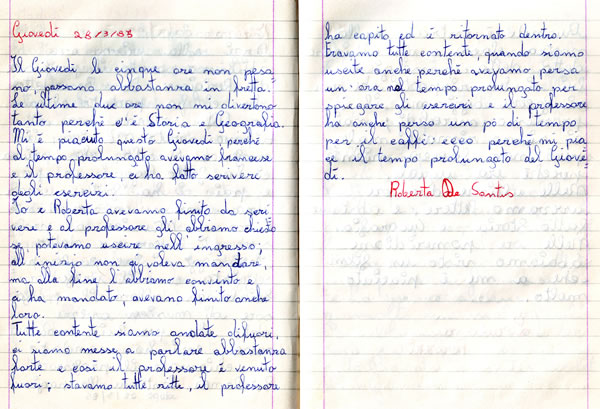 Giovedì 28/3/85
Il Giovedì le cinque ore non pesa-
no, passano abbastanza in fretta.
Le ultime due ore non mi divertono
tanto perchè c'è Storia e Geografia.
Mi è piaciuto questo Giovedì perchè
al tempo prolungato avevamo francese
e il professore, ci ha fatto scrivere
degli esercizi.
Io e Roberta avevamo finito da scri
vere e al professore gli abbiamo chiesto
se potevamo uscire nell'ingresso;
all'inizio non ci voleva mandare,
ma alla fine l'abbiamo convinto e
ci ha mandato, avevano finito anche
loro.
Tutte contente siamo andate difuori,
ci siamo messe a parlare abbastanza
forte e così il professore è venuto
fuori; stavamo tutte ritte, il professore
ha capito ed è ritornato dentro.
Eravamo tutte contente, quando siamo
uscite anche perchè avevamo persa
un'ora al tempo prolungato per
spiegare gli esercizi e il professore
ha anche perso un pò di tempo
per il caffè: ecco perchè mi pia
ce il tempo prolungato del Giove-
dì.
Roberta De Santis